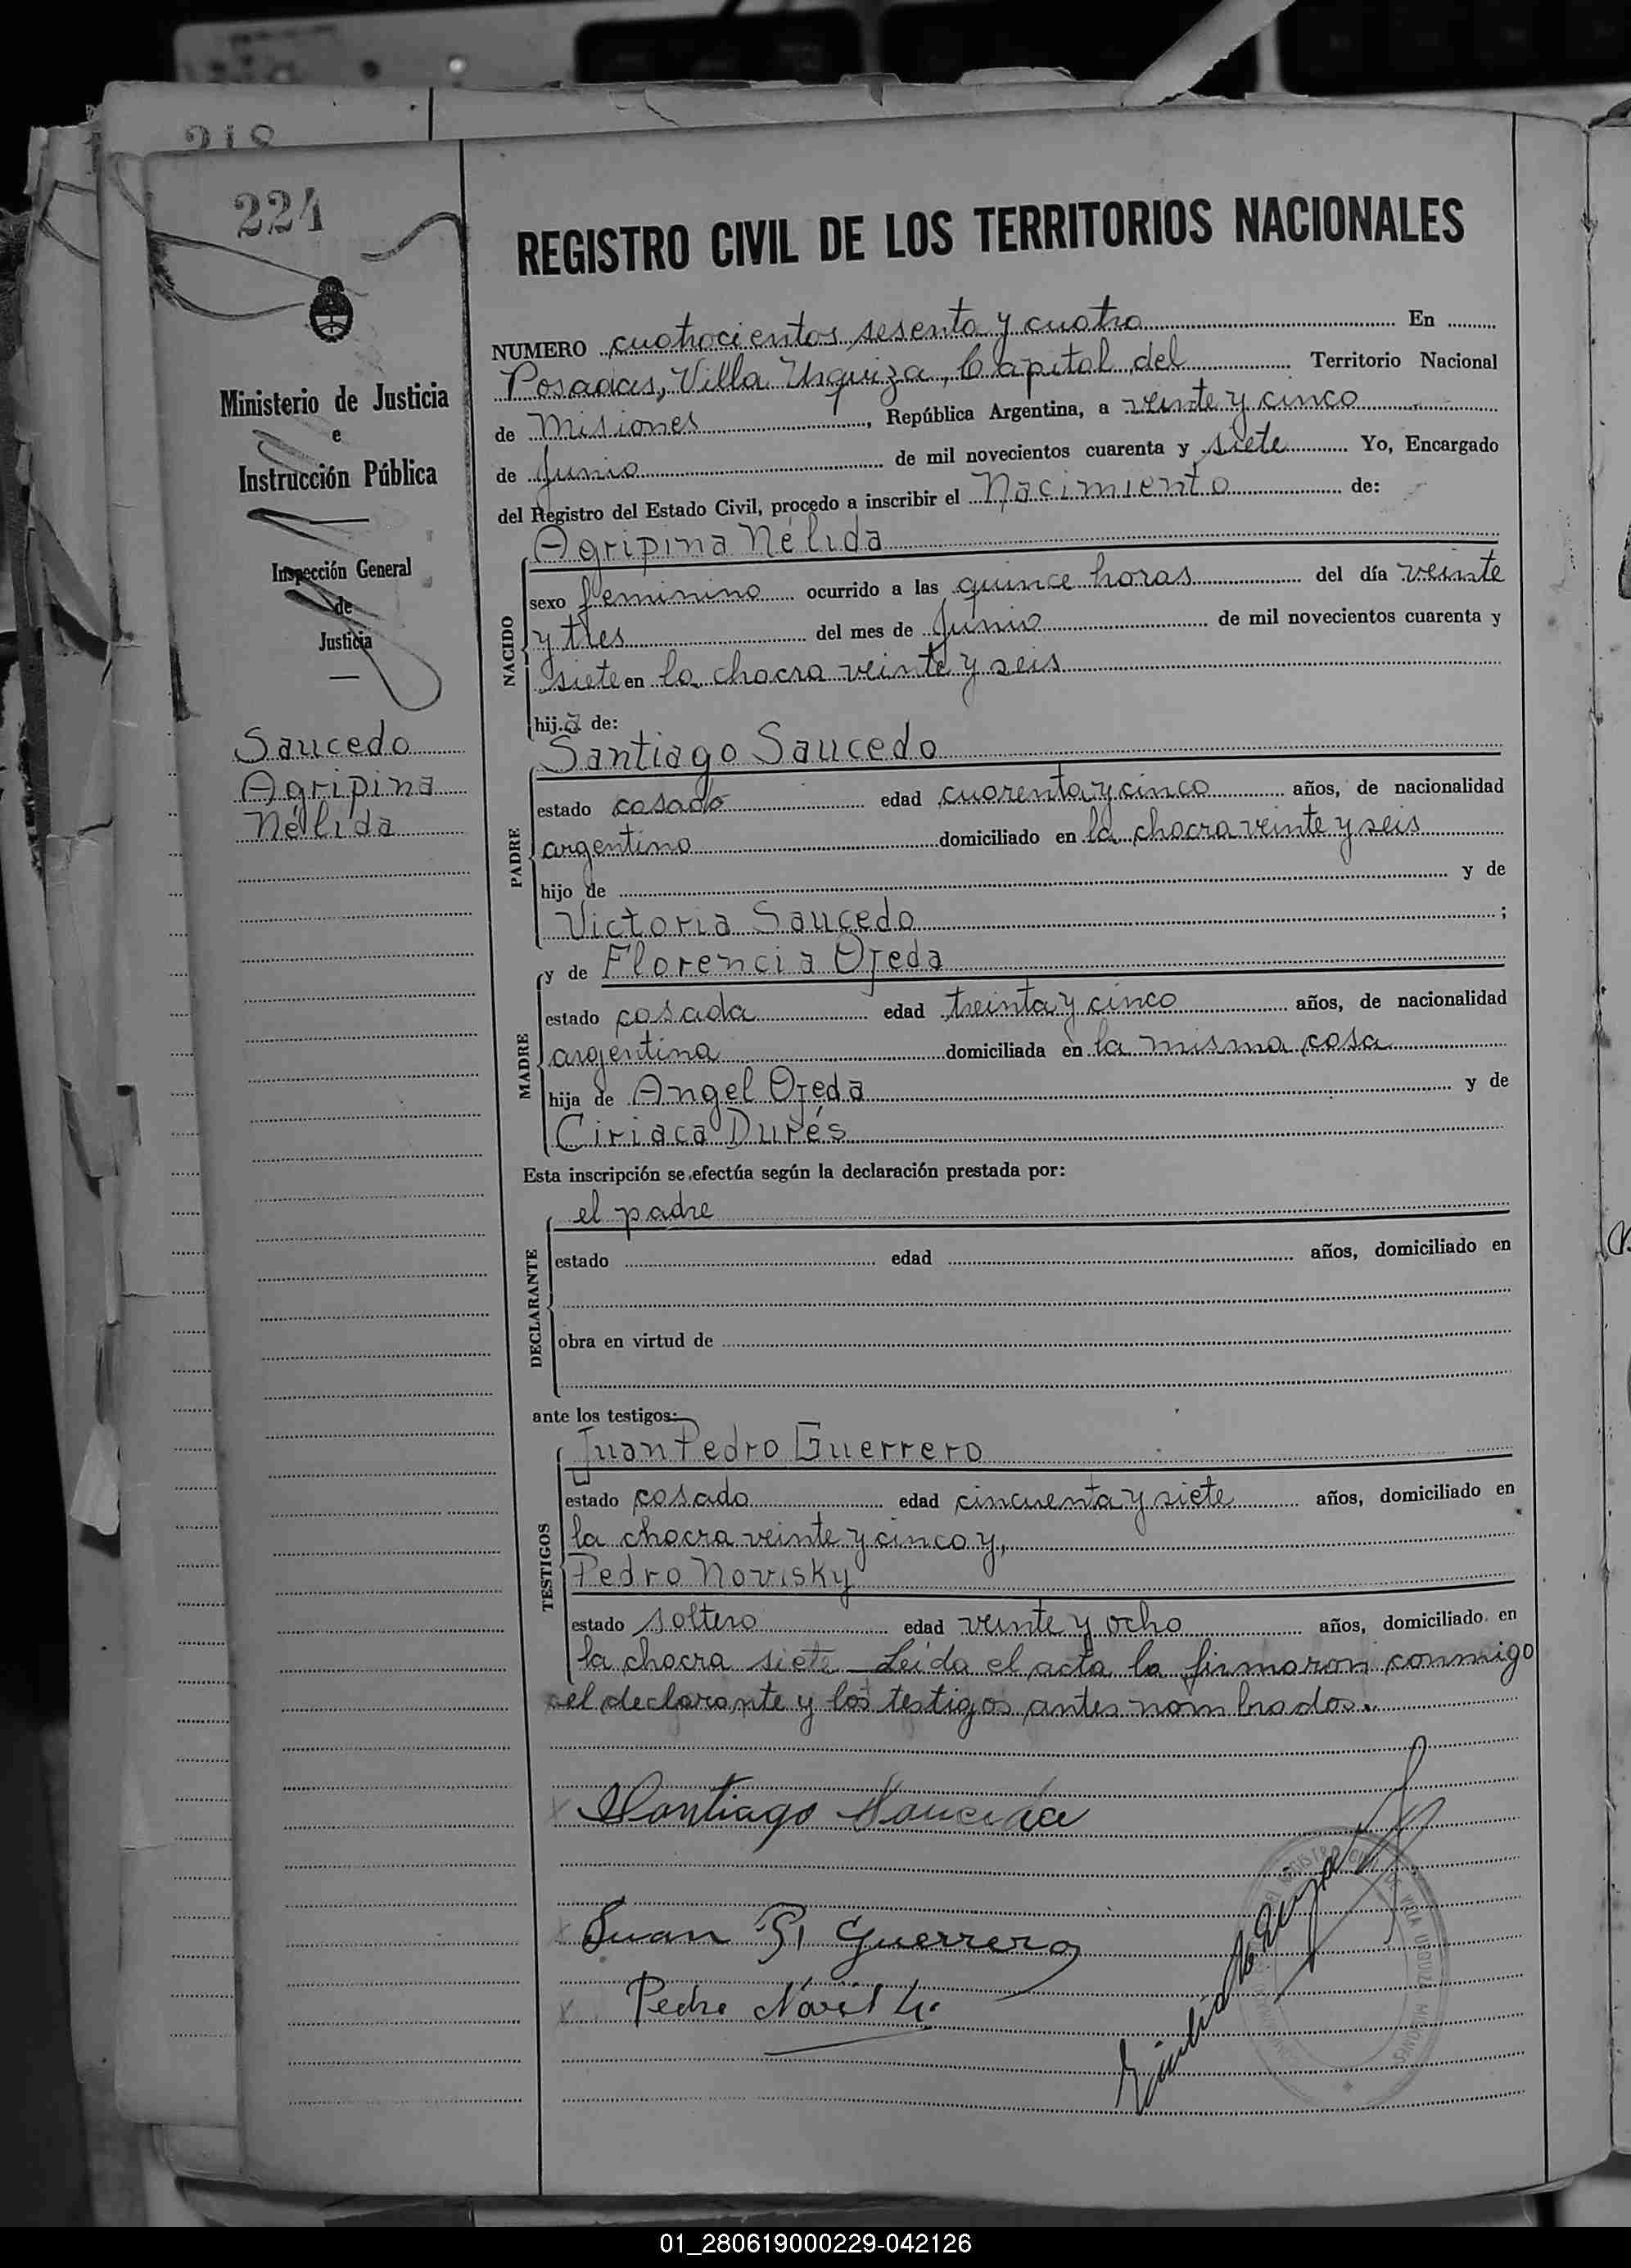 218
224
REGISTRO CIVIL DE LOS TERRITORIOS NACIONALES
Ministerio de Justicia
e
Instrucción Pública
Inspección General
de
Justicia
Saucedo
Agripina
Nélida
NUMERO cuatrocientos sesenta y cuatro En
Posadas, Villa Urquiza, Capital del Territorio Nacional
de Misiones, República Argentina, a veinte y cinco
de Junio de mil novecientos cuarenta y siete Yo, Encargado
del Registro del Estado Civil, procedo a inscribir el Nacimiento de:
Agripina Nélida
NACIDO
sexo femenino ocurrido a las quince horas del día veinte
y tres del mes de Junio de mil novecientos cuarenta y
siete en la chacra veinte y seis
hij.a de:
Santiago Saucedo
PADRE
estado casado edad cuarenta y cinco años, de nacionalidad
argentino domiciliado en la chacra veinte y seis
hijo de y de
Victoria Saucedo ;
y de Florencia Ojeda
MADRE
estado casada edad treinta y cinco años, de nacionalidad
argentina domiciliada en la misma casa
hija de Angel Ojeda y de
Ciriaca Durés
Esta inscripción se efectúa según la declaración prestada por:
el padre
DECLARANTE
estado edad años, domiciliado en
obra en virtud de
ante los testigos:
Juan Pedro Guerrero
TESTIGOS
estado casado edad cincuenta y siete años, domiciliado en
la chacra veinte y cinco y,
Pedro Novisky
estado soltero edad veinte y ocho años, domiciliado en
la chacra siete Leída el acta la firmaron conmigo
el declarante y los testigos antes nombrados.
Santiago Saucedo
Juan P. Guerrero
Pedro
REGISTRO CIVIL VILLA URQUIZA MISIONES
01_280619000229-042126